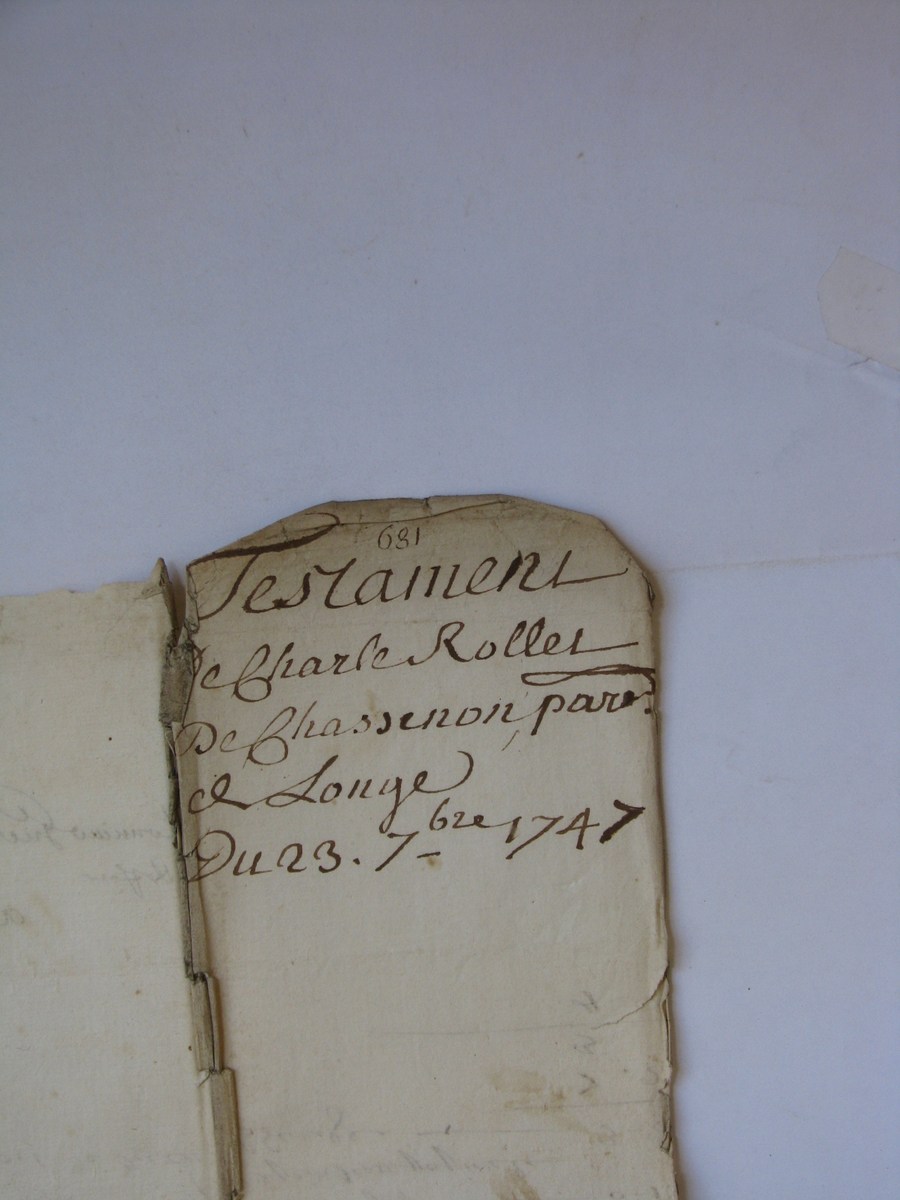 631
Testament
de Charle Rollet
De Chassenon, par.
de Longe
Du 23. 7bre 1747